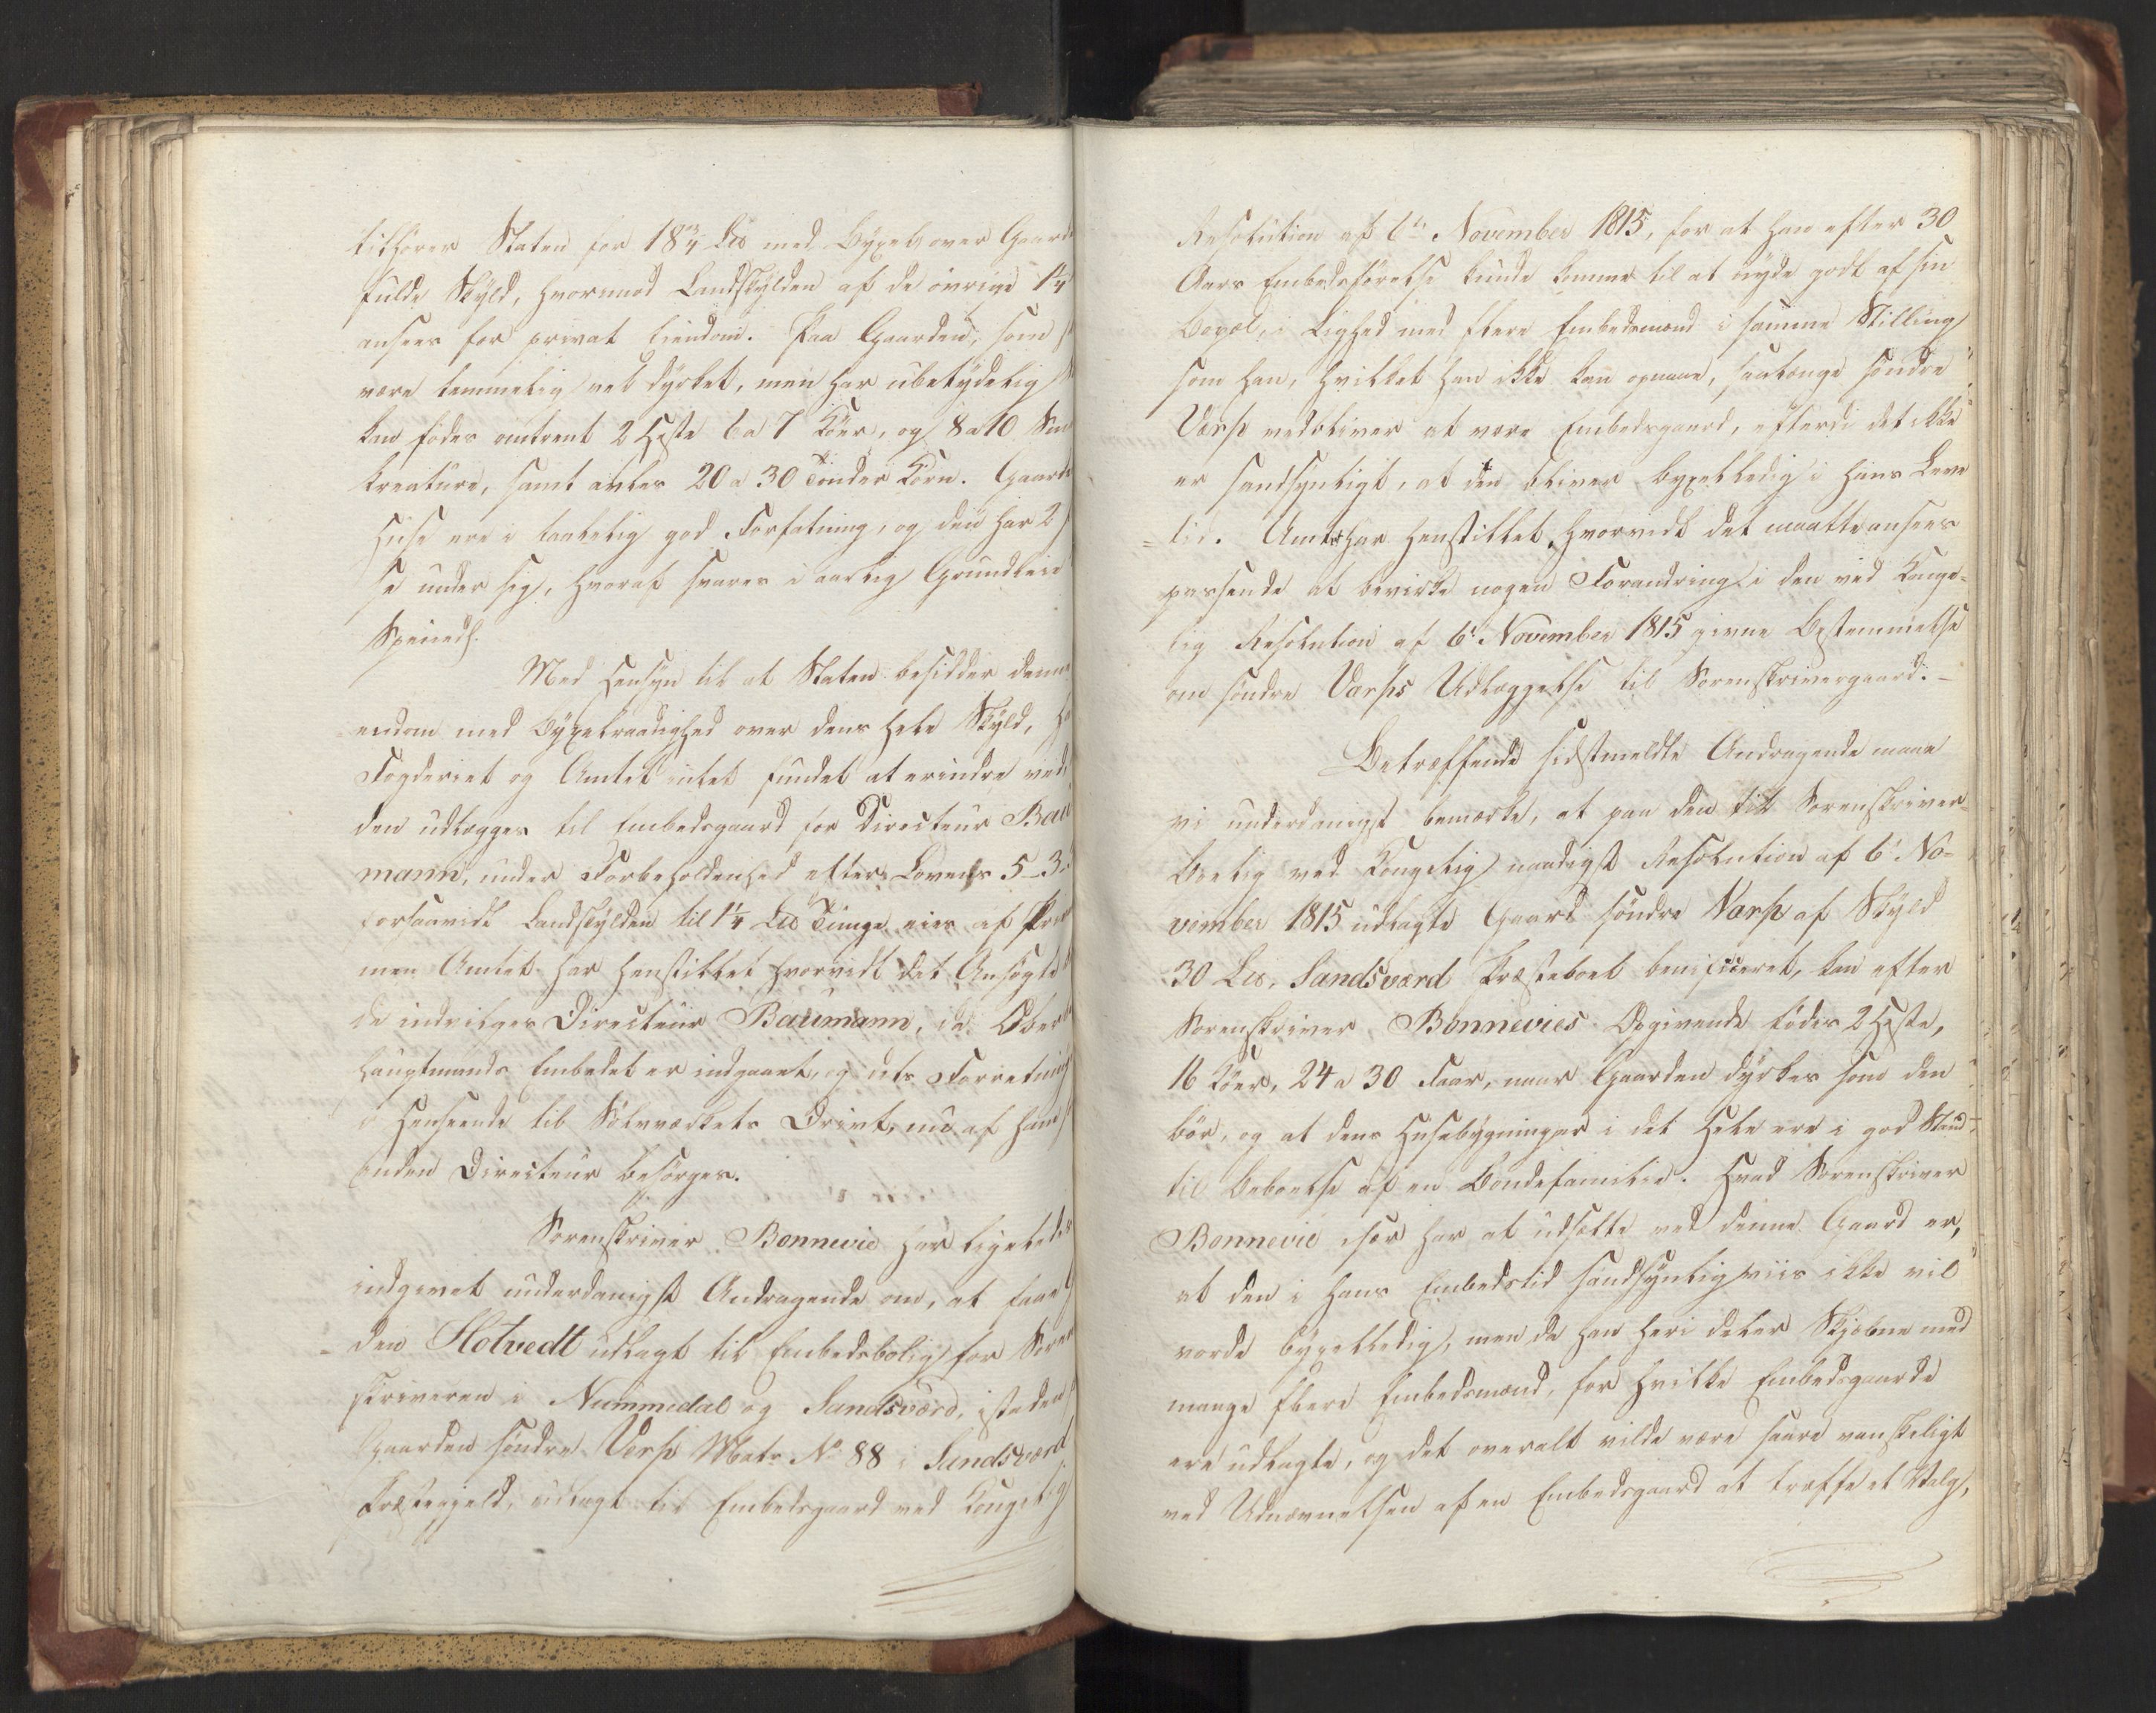 tilhører Staten for 18 3/4 Lis med Byxel over Gaard
fulde Skyld, hvorimod Landskylden af de øvrige 1 1/4
ansees for privat Eiendom. Paa Gaarden, som
være temmelig vel dyrket, men har ubetydelig
kan födes omtrent 2 Heste 6 a 7 Köer, og 8 a 10 Smaa
kreature, samt avles 20 a 30 Tönder Korn. Gaard
Huse ere i taalelig god Forfatning, og den har 2
se under sig, hvoraf svares i aarlig Grundleie
Speciedlr.
Med Hensyn til at Staten besidder denne
endom med Byxelraadighed over dens hele Skyld, ha
Fogderiet og Amtet intet fundet at erindre ved,
den udlægges til Embedsgaard for Directeur Bau
mann, under Forbeholdenhed efter Lovens 5-3-
forsaavidt Landskylden til 1 1/4 Lis Tunge eies af Pri
men Amtet har henstillet hvorvidt det Ansögte
de indvilges Directeur Baumann, da Ober
hauptmands Embedet er indgaaet, og dets Forretning
i Henseende til Sölvværkets Drivt, nu af ham
anden Directeur besörges.
Sorenskriver Bonnevie har ligeledes
indgivet underdanigst Andragende om, at faae
den Hotvedt udlagt til Embedsbolig for Soren
skriveren i Nummedal og Sandsværd, istedet
Gaarden söndre Værp Matr. No 88 i Sandsværd
Præstegjeld, udlagt til Embedsgaard ved Kongelig
Resolution af 6te November 1815, for at han efter 30
Aars Embedsförelse kunde komme til at nyde godt af sin
Bopæl, i Lighed med flere Embedsmænd i samme Stilling
som han, hvilket han ikke kan opnaae, saalænge söndre
Værp vedbliver at være Embedsgaard, efterdi det ikke
er sandsynligt, at den bliver byxelledig i hans Leve
=tid. Amtet har henstillet, hvorvidt det maatte ansees
passende at bevirke nogen Forandring i den ved Konge=
lig Resolution af 6te November 1815 givne Bestemmelse
om söndre Værps Udlæggelse til Sorenskrivergaard. -
Betræffende sidstmeldte Andragende maae
vi underdanigst bemærke, at paa den til Sorenskriver=
Bolig ved Kongelig naadigst Resolution af 6te No=
vember 1815 udlagte Gaard söndre Værp af Skyld
30 Lis, Sandsværd Præstebol beneficeret, kan efter
Sorenskriver Bonnevies Opgivende födes 2 Heste,
16 Köer, 24 a 30 Faar, naar Gaarden dyrkes som den
bör, og at dens Husebygninger i det Hele ere i god Stand
til Beboelse af en Bondefamilie. Hvad Sorenskriver
Bonnevie især har at udsætte ved denne Gaard er,
at den i hans Embedstid sandsynligviis ikke vil
vorde byxelledig, men da han heri deler Skjæbne med
mange flere Embedsmænd, for hvilke Embedsgaarde
ere udlagte, og det overalt vilde være saare vanskeligt
ved Udnævnelsen af en Embedsgaard at træffe et Valg,